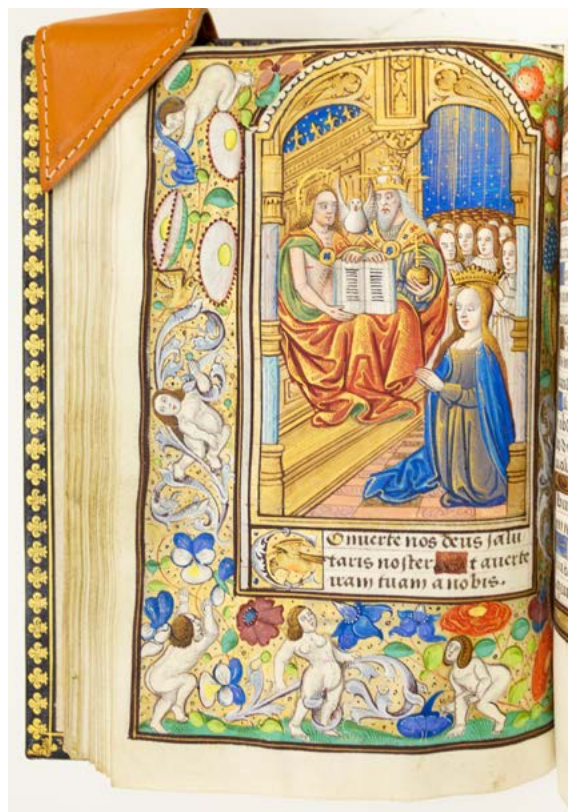 Onuerte nos deus salu
taris noster t auerte
iram tuam a nobis.